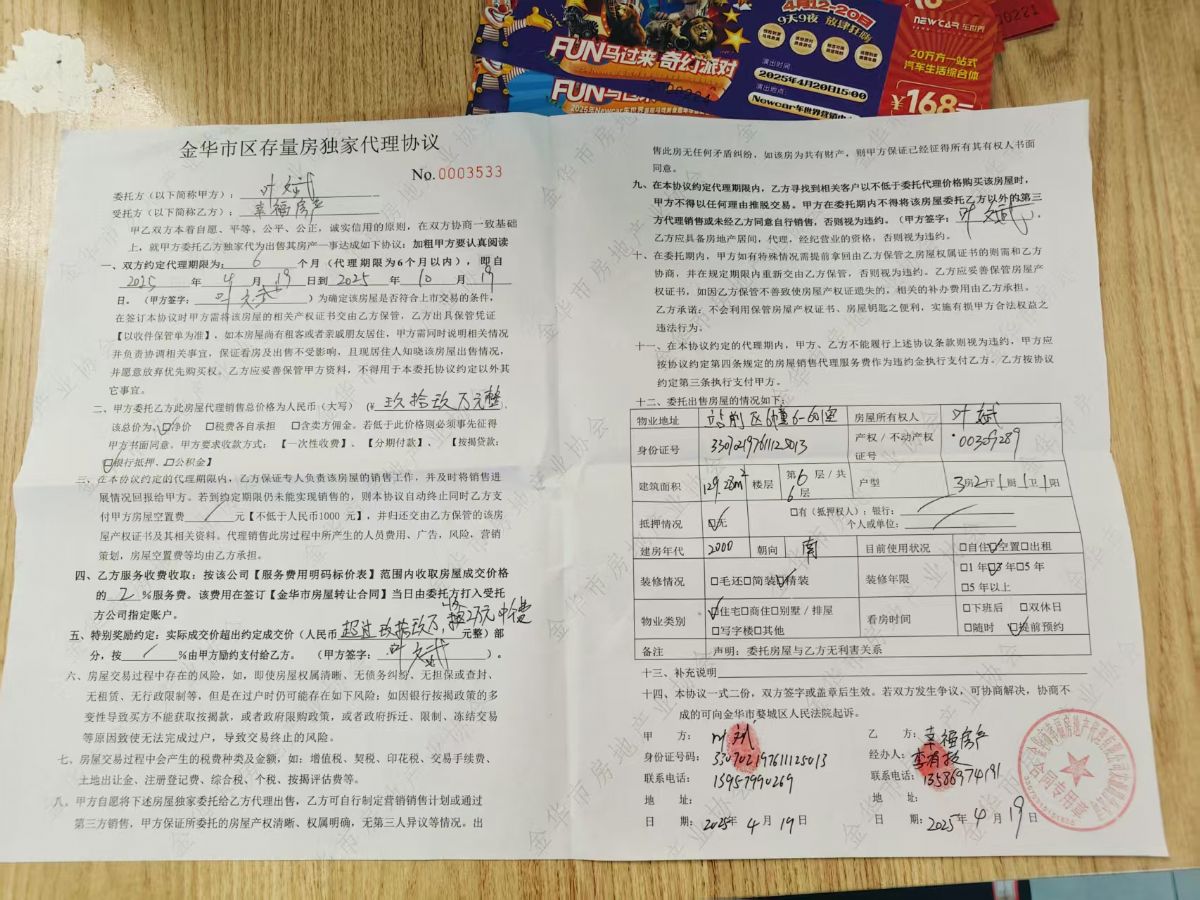 4月12-20日
9天9夜 放肆狂购
FUN马过来 奇幻派对
演出时间:
2025年4月20日15:00
演出地点:
Newcar车世界营销中心
NEWCAR 车世界
20万方一站式
汽车生活综合体
¥168元
FUN马过来 奇幻派对
金华市区存量房独家代理协议
No.0003533
委托方（以下简称甲方）：叶斌
受托方（以下简称乙方）：幸福房产
甲乙双方本着自愿、平等、公平、公正，诚实信用的原则，在双方协商一致基础
上，就甲方委托乙方独家代为出售其房产一事达成如下协议：加租甲方要认真阅读
一、双方约定代理期限为：6 个月（代理期限为6个月以内），即自
2025 年 4 月 19 日到 2025 年 10 月 19
日。（甲方签字： ）为确定该房屋是否符合上市交易的条件，
在签订本协议时甲方需将该房屋的相关产权证书交由乙方保管，乙方出具保管凭证
【以收件保管单为准】，如本房屋尚有租客或者亲戚朋友居住，甲方需同时说明相关情况
并负责协调相关事宜，保证看房及出售不受影响，且现居住人知晓该房屋出售情况，
并愿意放弃优先购买权。乙方应妥善保管甲方资料，不得用于本委托协议约定以外其
它事宜。
二、甲方委托乙方此房屋代理销售总价格为人民币（大写）（¥玖拾玖万元整），
该总价为：☑净价 □税费各自承担 □含卖方佣金。若低于此价格则必须事先征得
甲方书面同意。甲方要求收款方式：【一次性收费】、【分期付款】、【按揭贷款：
☑银行抵押、□公积金】
三、在本协议约定的代理期限内，乙方保证专人负责该房屋的销售工作，并及时将销售进
展情况回报给甲方。若到约定期限仍未能实现销售的，则本协议自动终止同时乙方支
付甲方房屋空置费 / 元【不低于人民币1000 元】，并归还交由乙方保管的该房
屋产权证书及其相关资料。代理销售此房过程中所产生的人员费用、广告，风险，营销
策划，房屋空置费等均由乙方承担。
四、乙方服务收费收取：按该公司【服务费用明码标价表】范围内收取房屋成交价格
的 2 %服务费。该费用在签订【金华市房屋转让合同】当日由委托方打入受托
方公司指定账户。
五、特别奖励约定：实际成交价超出约定成交价（人民币 超过玖拾玖万， 元整）部
分，按 / %由甲方励约支付给乙方。（甲方签字： ）。
六、房屋交易过程中存在的风险，如，即使房屋权属清晰、无债务纠纷、无担保或查封、
无租赁、无行政限制等，但是在过户时仍可能存在如下风险；如因银行按揭政策的多
变性导致买方不能获取按揭款，或者政府限购政策，或者政府拆迁、限制、冻结交易
等原因致使无法完成过户，导致交易终止的风险。
七、房屋交易过程中会产生的税费种类及金额，如：增值税、契税、印花税、交易手续费、
土地出让金、注册登记费、综合税、个税、按揭评估费等。
八、甲方自愿将下述房屋独家委托给乙方代理出售，乙方可自行制定营销销售计划或通过
第三方销售，甲方保证所委托的房屋产权清晰、权属明确，无第三人异议等情况。出
售此房无任何矛盾纠纷，如该房为共有财产，则甲方保证已经征得所有其有权人书面
同意。
九、在本协议约定代理期限内，乙方寻找到相关客户以不低于委托代理价格购买该房屋时，
甲方不得以任何理由推脱交易。甲方在委托期内不得将该房委托乙方以外的第三
方代理销售或未经乙方同意自行销售，否则视为违约。（甲方签字：叶斌），
乙方应具备房地产居间，代理，经纪营业的资格，否则视为违约。
十、在委托期内，甲方如有特殊情况需提前拿回由乙方保管之房屋权属证书的则需和乙方
协商，并在规定期限内重新交由乙方保管，否则视为违约。乙方应妥善保管房屋产
权证书，如因乙方保管不善致使房屋产权证遗失的，相关的补办费用由乙方承担。
乙方承诺：不会利用保管房屋产权证书、房屋钥匙之便利，实施有损甲方合法权益之
违法行为。
十一、在本协议约定的代理期内，甲方、乙方不能履行上述协议条款则视为违约，甲方应
按协议约定第四条规定的房屋销售代理服务费作为违约金执行支付乙方。乙方按协议
约定第三条执行支付甲方。
十二、委托出售房屋的情况如下：
物业地址 站前区6幢6-601室 房屋所有权人 叶斌
身份证号 330702197611125013 产权/不动产权证号 00309289
建筑面积 129.28m² 楼层 第6层/共6层 户型 3房2厅1厨1卫1阳
抵押情况 ☑无 □有（抵押权人）：银行：
个人或单位：
建房年代 2000 朝向 南 目前使用状况 □自住☑空置□出租
装修情况 □毛还□简装☑精装 装修年限 □1年☑3年□5年
□5年以上
物业类别 ☑住宅□商住□别墅/排屋 看房时间 □下班后 □双休日
□写字楼□其他 □随时 ☑提前预约
备注 声明：委托房屋与乙方无利害关系
十三、补充说明
十四、本协议一式二份，双方签字或盖章后生效。若双方发生争议，可协商解决，协商不
成的可向金华市婺城区人民法院起诉。
甲 方：叶斌 乙 方：幸福房产
身份证号码：330702197611125013 经办人：
联系电话：13957990269 联系电话：13586974191
地 址： 地 址：
日 期：2025年4月19日 日 期：2025年4月19日
合同专用章